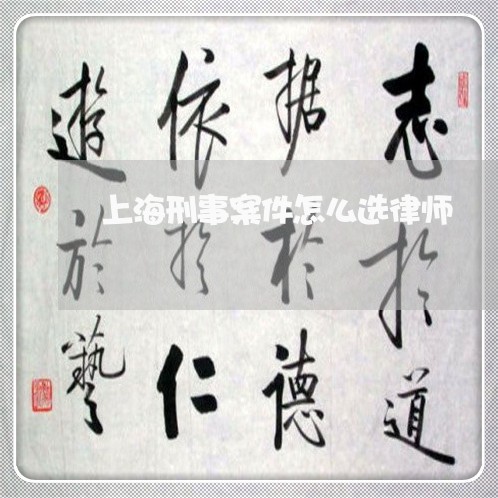 上海刑事案件怎么选律师
志於道
据於德
依於仁
遊於藝